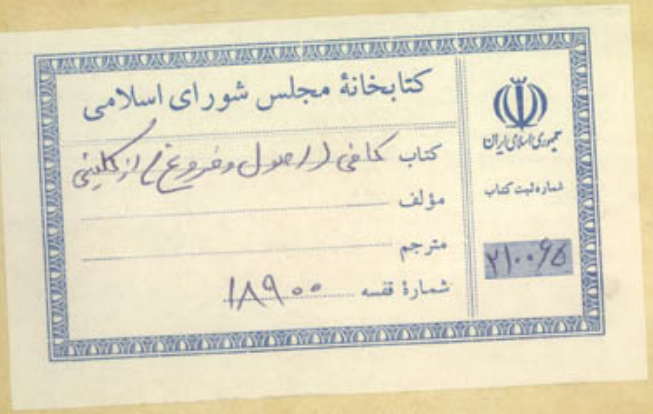 کتابخانهٔ مجلس شورای اسلامی
کتاب کافی (اصول و فروع) از کلینی
مؤلف
مترجم
شمارهٔ قفسه ۱۸۹۰۰
جمهوری اسلامی ایران
شماره ثبت کتاب
۲۱۰۰۶۵